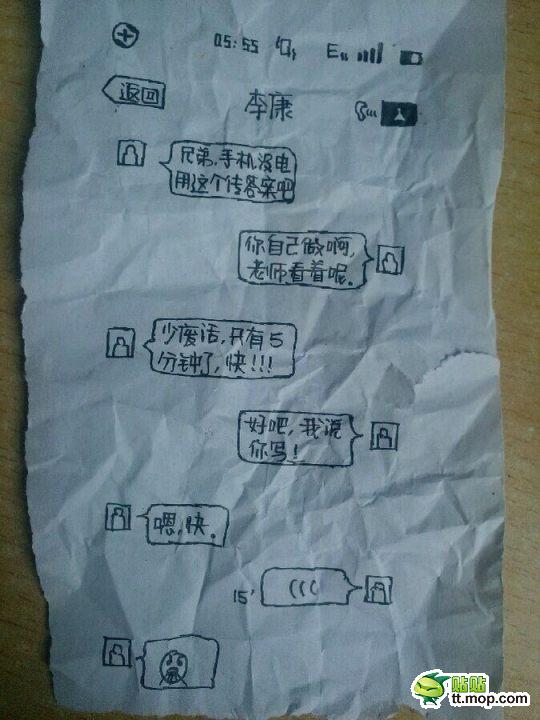 05:55 E
返回
李康
兄弟,手机没电
用这个传答案吧
你自己做啊,
老师看着呢.
少废话,只有5
分钟了,快!!!
好吧,我说
你写!
嗯,快.
15'
贴贴
tt.mop.com